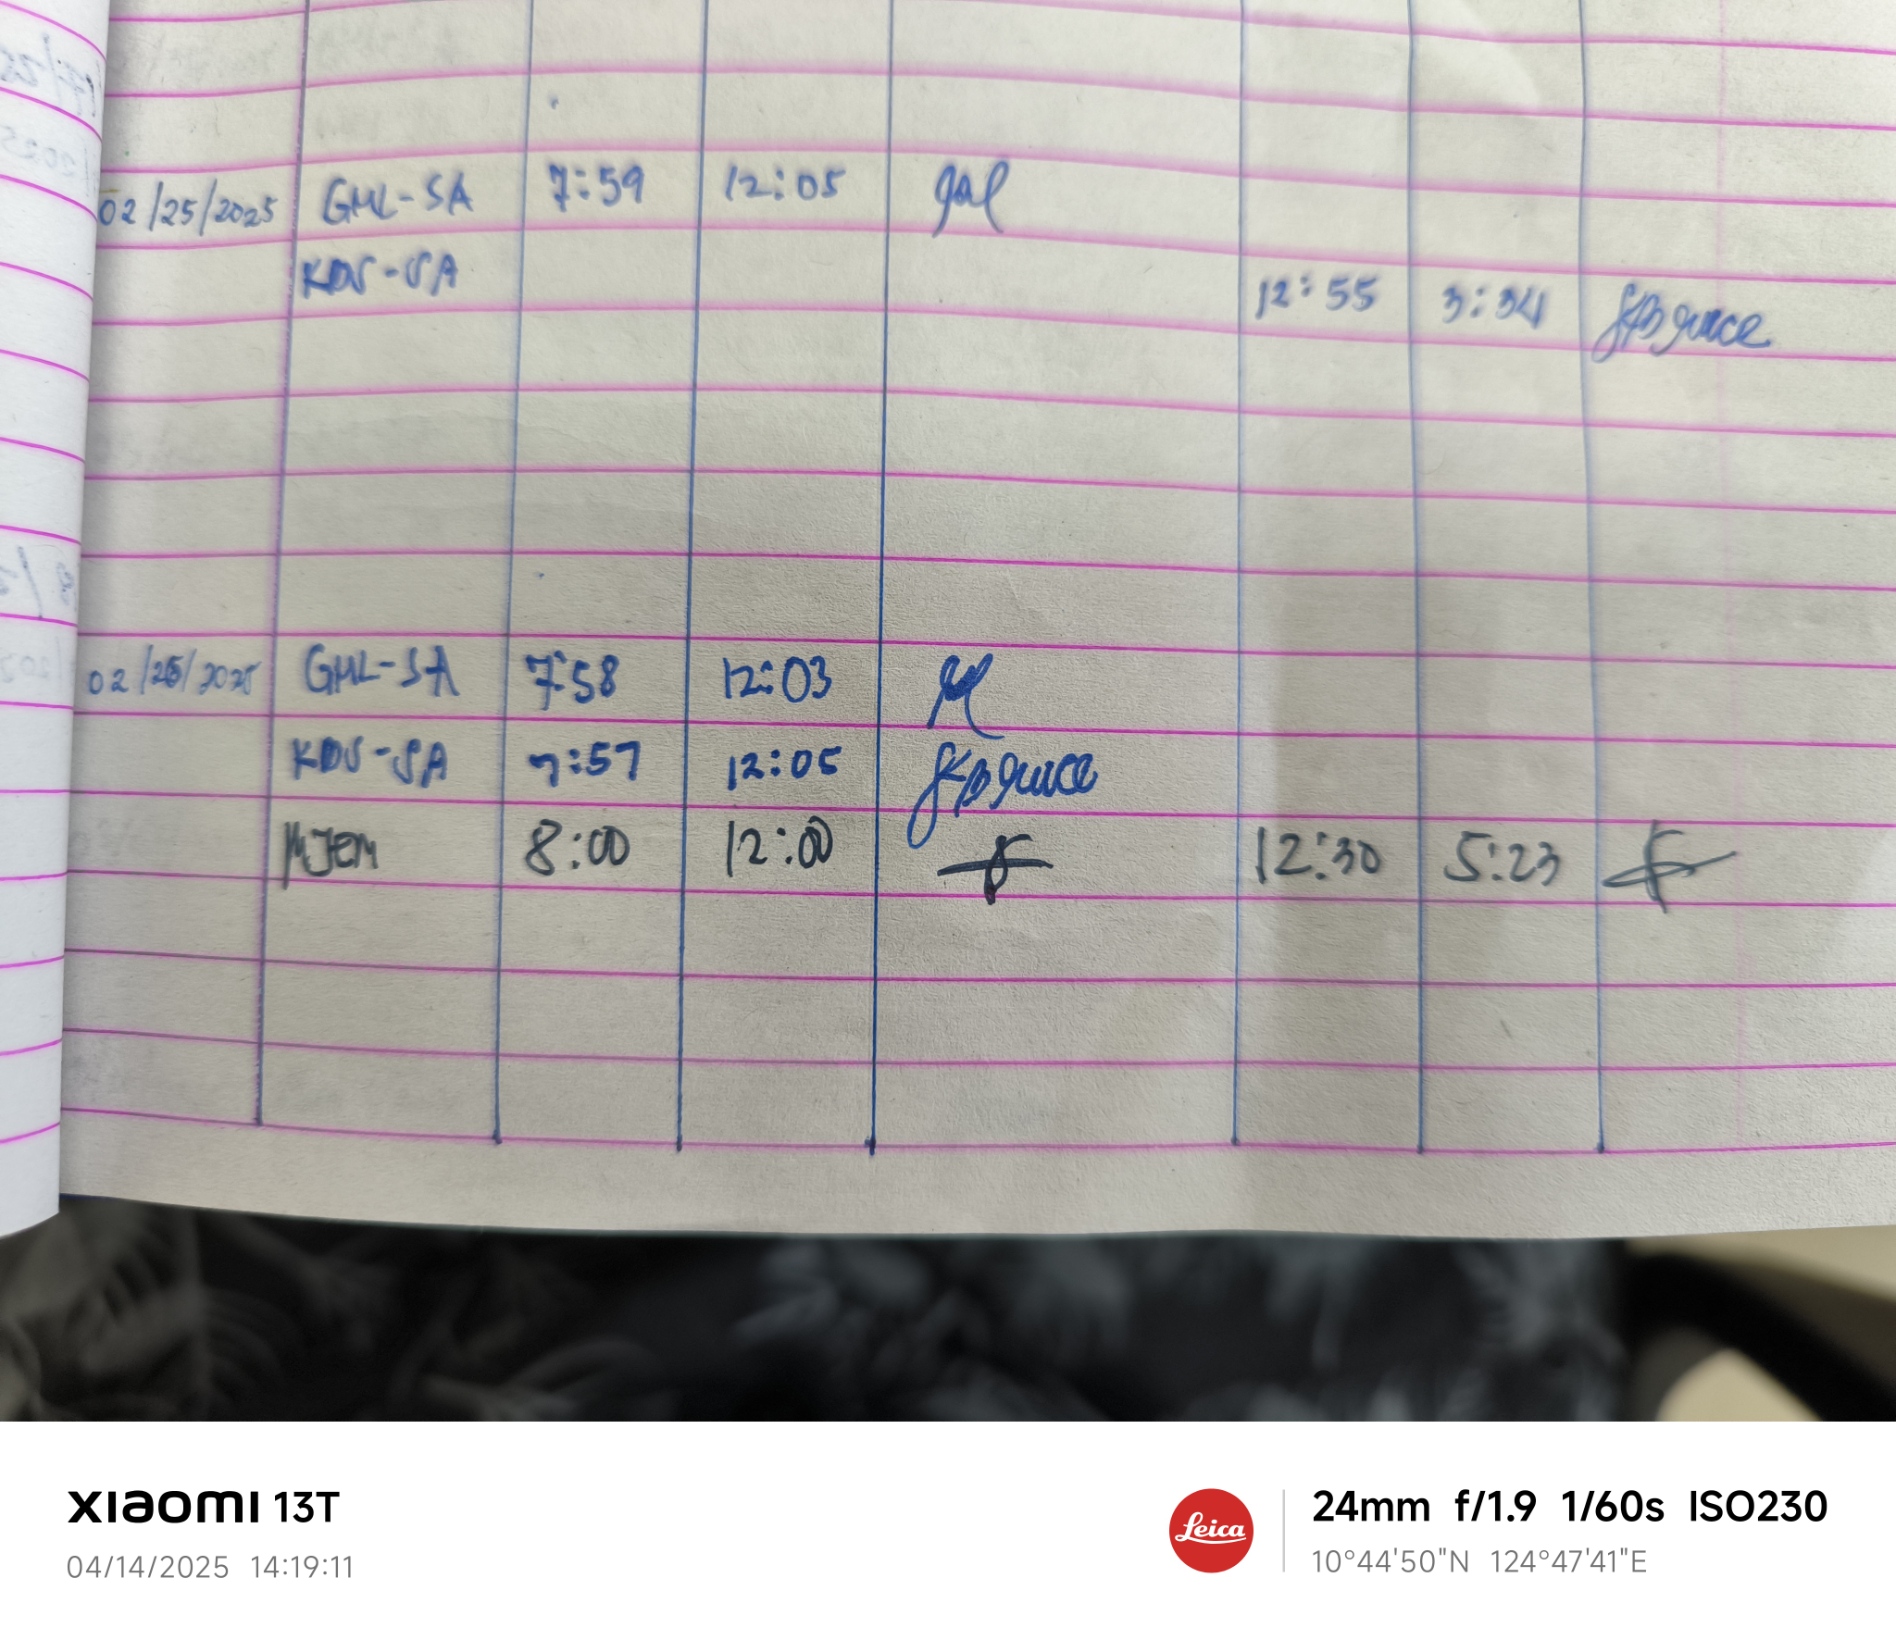 02/25/2025 GML-SA 7:59 12:05
KDS-SA 12:55 3:34
02/26/2025 GML-SA 7:58 12:03
KDS-SA 7:57 12:05
MJEM 8:00 12:00 12:30 5:23
XIAOMI 13T
04/14/2025 14:19:11
Leica
24mm f/1.9 1/60s ISO230
10°44'50"N 124°47'41"E